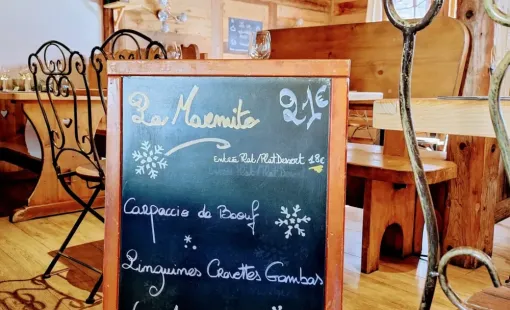 La Marmite 21€
Entrée Plat/Plat Dessert 18€
Carpaccio de Boeuf
Linguines Crevettes Gambas